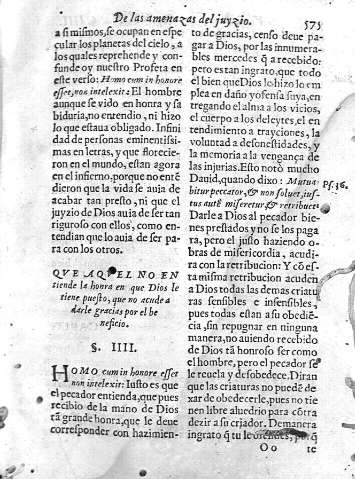 De las amenazas del juyzio. 575
a si mismos, se ocupan en espe
cular los planetas del cielo, a
los quales reprehende y con-
funde oy nuestro Profeta en
este verso: Homo cum in honore
esset, non intelexit: El hombre
aunque se vido en honra y sa
biduria, no entendio, ni hizo
lo que estaua obligado. Infini
dad de personas eminentissi-
mas en letras, y que florecie-
ron en el mundo, estan agora
en el infierno, porque no entẽ
dieron que la vida se auia de
acabar tan presto, ni que el
juyzio de Dios auia de ser tan
riguroso con ellos, como en-
tendian que lo auia de ser pa-
ra con los otros.
QVE AQVEL NO EN
tiende la honra en que Dios le
tiene puesto, que no acude a
darle gracias por el be
neficio.
§. IIII.
HOMO cum in honore esset
non intelexit: Iusto es que
el pecador entienda, que pues
recibio de la mano de Dios
tã grande honra, que le deue
corresponder con hazimien-
to de gracias, censo deue pa-
gar a Dios, por las innumera-
bles mercedes q̃ a recebido:
pero es tan ingrato, que todo
el bien que Dios lo hizo lo em
plea en daño y ofensa suya, en
tregando el alma a los vicios,
el cuerpo a los deleytes, el en
tendimiento a trayciones, la
voluntad a desonestidades, y
la memoria a la vengança de
las injurias. Esto notò mucho
Dauid, quando dixo: Mutua
bitur peccator, & non soluet, ius-
tus autẽ miseretur, & retribuet:
Ps. 36.
Darle a Dios al pecador bie-
nes prestados y no se los paga
ra, pero el justo haziendo o-
bras de misericordia, acudi-
ra con la retribucion: Y cõ es-
ta misma retribucion acuden
a Dios todas las demas criatu
ras sensibles e insensibles,
pues todas estan a su obediẽ-
cia, sin repugnar en ninguna
manera, no auiendo recebido
de Dios tã honroso ser como
el hombre, pero el pecador se
le reuela y desobedece. Diran
que las criaturas no puedẽ de-
xar de obedecerle, pues no tie
nen libre aluedrio para cõtra
dezir a su criador. Demanera
ingrato q̃ tu le ofendes, porq̃
Oo te